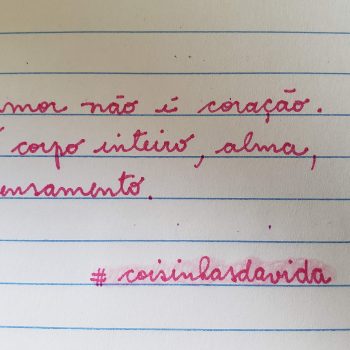 amor não é coração.
É corpo inteiro, alma,
pensamento.
# coisinhasdavida